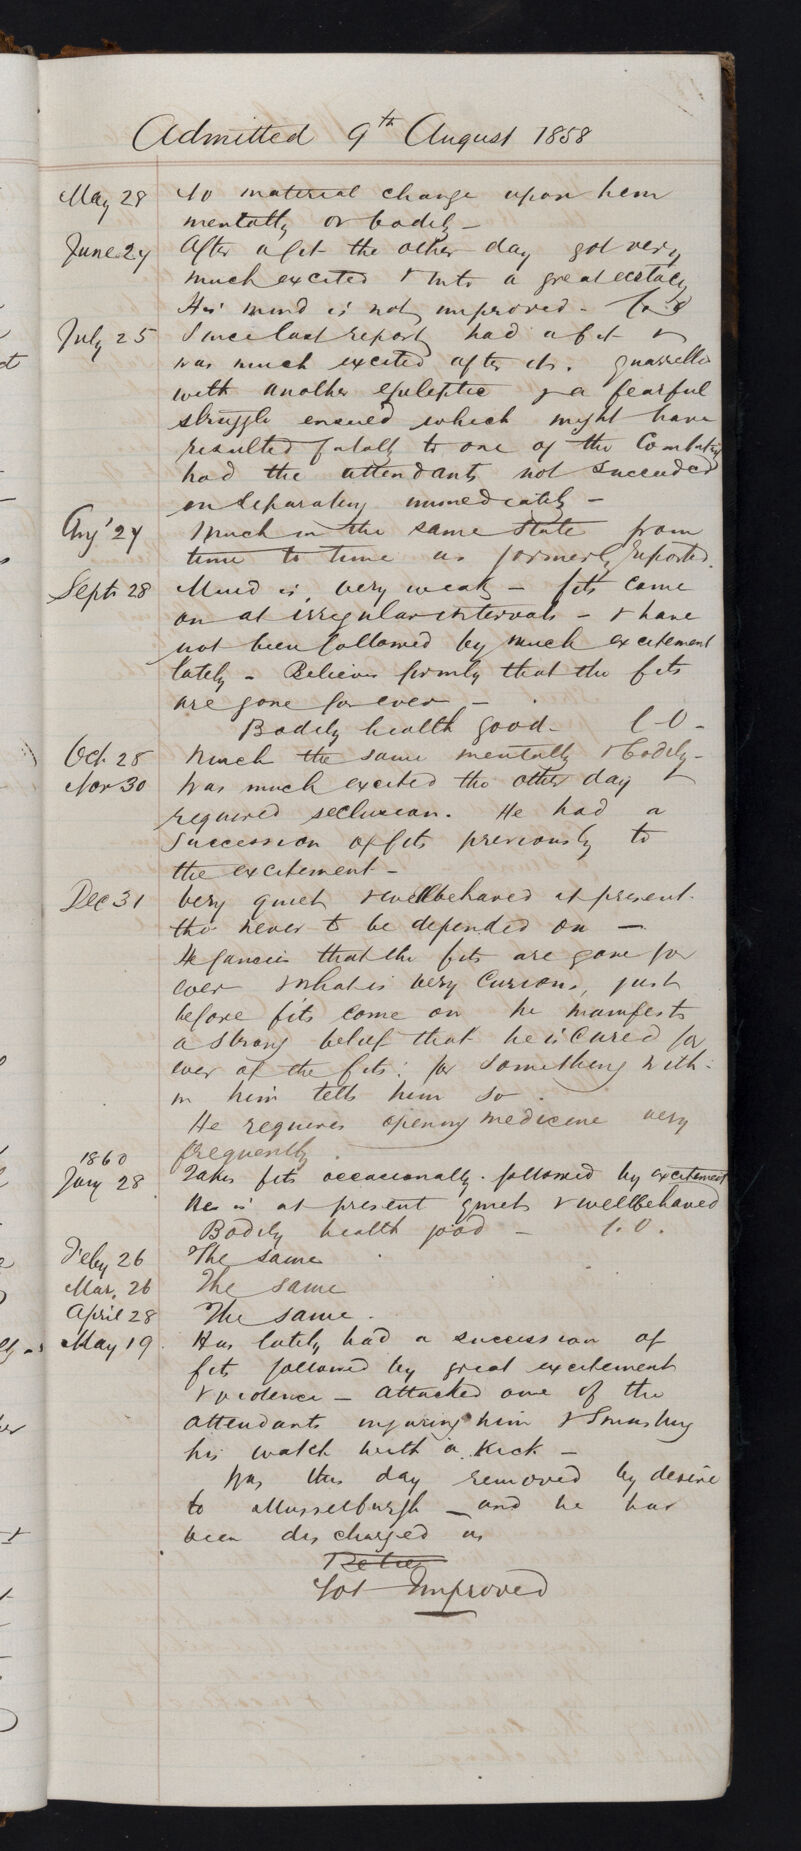 Admitted 9th August 1858
May 28 No material change upon him
mentally or bodily –
June 27 After a fit the other day got very
much excited & into a great ecstacy
His mind is not improved –
July 25 Since last report had a fit &
was much excited after it. quarrelled
with another epileptic & a fearful
struggle ensued which might have
resulted fatally to one of the Combatants
had the attendants not succeeded
in separating immediately –
Aug' 27 Much in the same state from
time to time as formerly reported.
Sept 28 Mind is very weak – fits come
on at irregular intervals – & have
not been followed by much excitement
lately – Believes firmly that the fits
are gone for ever –
Bodily health good –
Oct 28 Much the same mentally & bodily –
Nov 30 Was much excited the other day &
required seclusion. He had a
succession of fits previously to
the excitement –
Dec 31 Very quiet & wellbehaved at present.
tho never to be depended on –
He fancies that the fits are gone for
ever & what is very curious, just
before fits come on he manifests
a strong belief that he is cured for
ever of the fits: for something with-
in him tells him so.
He requires opening medicine very
frequently.
1860
Jany 28 Takes fits occasionally. followed by excitement
He is at present quiet & wellbehaved
Bodily health good –
Feby 26 The same
Mar. 26 The same
April 28 The same.
May 19 Has lately had a succession of
fits followed by great excitement
& violence – attacked one of the
attendants injuring him & smashing
his watch with a kick –
Was this day removed by desire
to Musselburgh – and he has
been discharged as
Not Improved